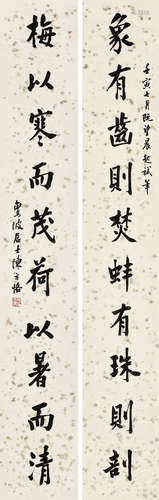 象有齒則焚蚌有珠則剖
壬寅七月既望晨起試筆
梅以寒而茂荷以暑而清
居士陳方恪